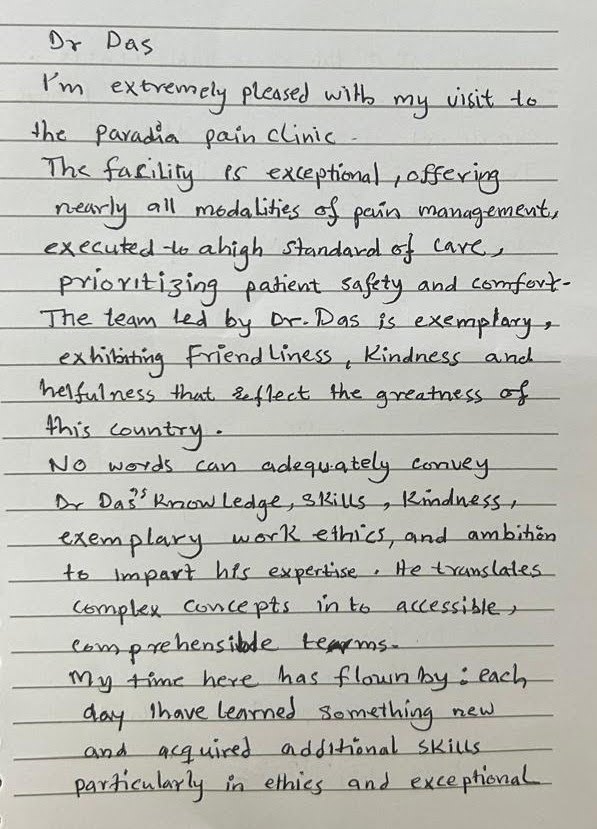 Dr Das
I'm extremely pleased with my visit to
the paradia pain clinic.
The facility is exceptional, offering
nearly all modalities of pain management,
executed to a high standard of care,
prioritizing patient safety and comfort.
The team led by Dr. Das is exemplary,
exhibiting Friendliness, Kindness and
helfulness that reflect the greatness of
this country.
No words can adequately convey
Dr Das's Knowledge, skills, Kindness,
exemplary work ethics, and ambition
to impart his expertise. He translates
complex concepts in to accessible,
comprehensible terms.
My time here has flown by: each
day I have learned something new
and acquired additional skills
particularly in ethics and exceptional